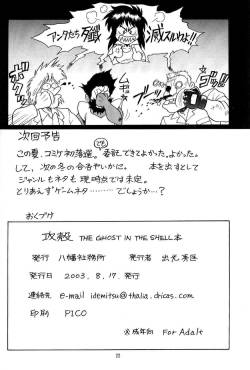 アンタたち
殲滅
するわよ!!
次回予告
この夏、コミケ初落選。委託できてよかった。よかった。
して、次の冬の合否やいかに。 本を出すとして
ジャンルもネタも 現時点では未定。
とりあえずゲームネタ………でしょうか…?
おくづけ
攻殻 THE GHOST IN THE SHELL本
発行 八幡社務所 発行者 出光英匡
発行日 2003. 8. 17. 発行
連絡先 e-mail idemitsu@thalia.dricas.com
印刷 PICO
成年向 For Adalt